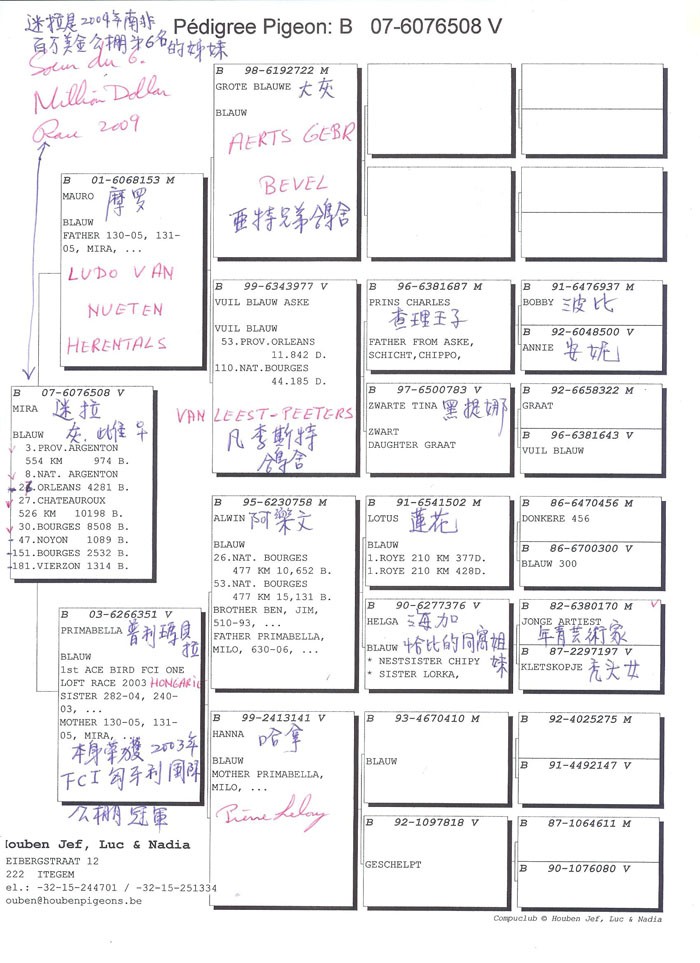 Pédigree Pigeon: B 07-6076508 V
迷拉是2009年南非
百万美金公棚第6名的姊妹
Soeur du 6.
Million Dollar
Race 2009
B 98-6192722 M
GROTE BLAUWE 大灰
BLAUW
AERTS GEBR
BEVEL
亜特兄弟鴿舍
B 01-6068153 M
MAURO 摩罗
BLAUW
FATHER 130-05, 131-
05, MIRA, ...
LUDO VAN
NUETEN
HERENTALS
B 99-6343977 V
VUIL BLAUW ASKE
VUIL BLAUW
53.PROV.ORLEANS
11.842 D.
110.NAT.BOURGES
44.185 D.
VAN LEEST-PEETERS
凡李斯特
鴿舍
B 96-6381687 M
PRINS CHARLES
查理王子
FATHER FROM ASKE,
SCHICHT,CHIPPO,
B 91-6476937 M
BOBBY 波比
B 92-6048500 V
ANNIE 安妮
B 97-6500783 V
ZWARTE TINA 黑提娜
ZWART
DAUGHTER GRAAT
B 92-6658322 M
GRAAT
B 96-6381643 V
VUIL BLAUW
B 07-6076508 V
MIRA 迷拉
BLAUW 灰.雌.
3.PROV.ARGENTON
554 KM 974 B.
8.NAT. ARGENTON
ORLEANS 4281 B.
27.CHATEAUROUX
526 KM 10198 B.
30.BOURGES 8508 B.
47.NOYON 1089 B.
151.BOURGES 2532 B.
181.VIERZON 1314 B.
B 95-6230758 M
ALWIN 阿樂文
BLAUW
26.NAT. BOURGES
477 KM 10,652 B.
53.NAT. BOURGES
477 KM 15,131 B.
BROTHER BEN, JIM,
510-93, ...
FATHER PRIMABELLA,
MILO, 630-06, ...
B 91-6541502 M
LOTUS 蓮花
BLAUW
1.ROYE 210 KM 377D.
1.ROYE 210 KM 428D.
B 86-6470456 M
DONKERE 456
B 86-6700300 V
BLAUW 300
B 90-6277376 V
HELGA 海加
BLAUW 恰比的同窩姐妹
* NESTSISTER CHIPY
* SISTER LORKA,
B 82-6380170 M
JONGE ARTIEST
年青芸術家
B 87-2297197 V
KLETSKOPJE 禿头女
B 03-6266351 V
PRIMABELLA 普利瑪貝拉
BLAUW
1st ACE BIRD FCI ONE
LOFT RACE 2003 HONGARIE
SISTER 282-04, 240-
03, ...
MOTHER 130-05, 131-
05, MIRA, ...
本身荣獲2003年
FCI 匈牙利國際
公棚冠軍
B 99-2413141 V
HANNA 哈拿
BLAUW
MOTHER PRIMABELLA,
MILO, ...
B 93-4670410 M
BLAUW
B 92-4025275 M
B 91-4492147 V
B 92-1097818 V
GESCHELPT
B 87-1064611 M
B 90-1076080 V
Houben Jef, Luc & Nadia
EIBERGSTRAAT 12
222 ITEGEM
el.: -32-15-244701 / -32-15-251334
ouben@houbenpigeons.be
Compuclub © Houben Jef, Luc & Nadia